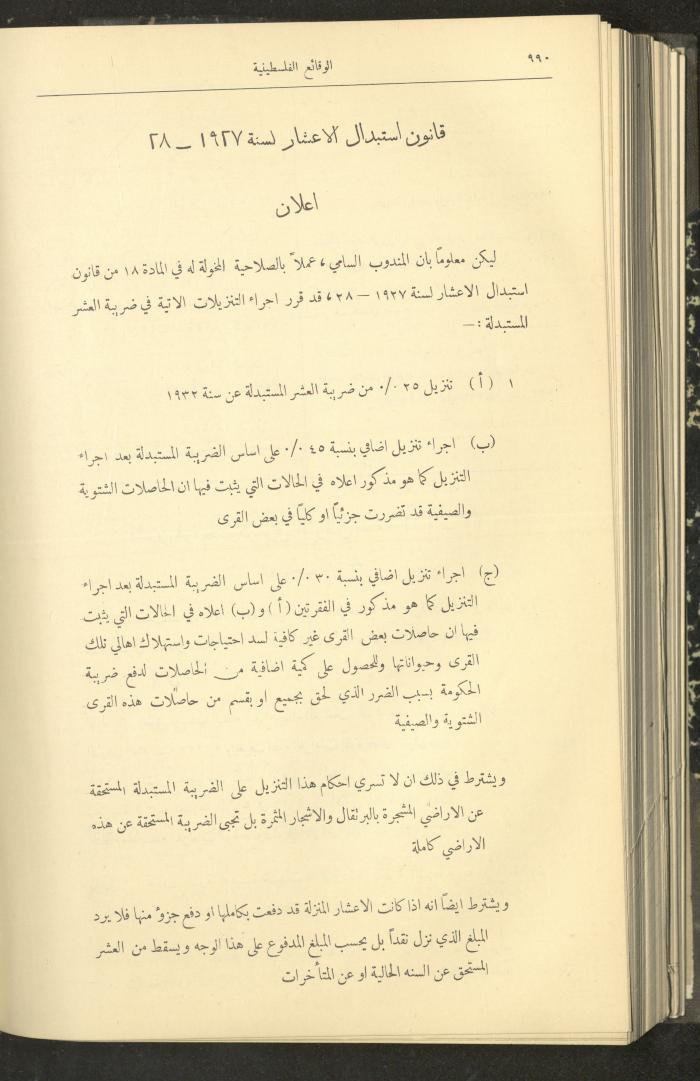 ٩٩٠
الوقائع الفلسطينية
قانون استبدال الاعشار لسنة ١٩٢٧ – ٢٨
اعلان
ليكن معلوماً بان المندوب السامي، عملاً بالصلاحية المخولة له في المادة ١٨ من قانون
استبدال الاعشار لسنة ١٩٢٧ – ٢٨، قد قرر اجراء التنزيلات الاتية في ضريبة العشر
المستبدلة :—
١ (أ) تنزيل ٢٥ ٠/٠ من ضريبة العشر المستبدلة عن سنة ١٩٣٢
(ب) اجراء تنزيل اضافي بنسبة ٤٥ ٠/٠ على اساس الضريبة المستبدلة بعد اجراء
التنزيل كما هو مذكور اعلاه في الحالات التي يثبت فيها ان الحاصلات الشتوية
والصيفية قد تضررت جزئياً او كلياً في بعض القرى
(ج) اجراء تنزيل اضافي بنسبة ٣٠ ٠/٠ على اساس الضريبة المستبدلة بعد اجراء
التنزيل كما هو مذكور في الفقرتين (أ) و (ب) اعلاه في الحالات التي يثبت
فيها ان حاصلات بعض القرى غير كافية لسد احتياجات واستهلاك اهالي تلك
القرى وحيواناتها وللحصول على كمية اضافية من الحاصلات لدفع ضريبة
الحكومة بسبب الضرر الذي لحق بجميع او بقسم من حاصلات هذه القرى
الشتوية والصيفية
ويشترط في ذلك ان لا تسري احكام هذا التنزيل على الضريبة المستبدلة المستحقة
عن الاراضي المشجرة بالبرتقال والاشجار المثمرة بل تجبى الضريبة المستحقة عن هذه
الاراضي كاملة
ويشترط ايضاً انه اذا كانت الاعشار المنزلة قد دفعت بكاملها او دفع جزؤ منها فلا يرد
المبلغ الذي نزل نقداً بل يحسب المبلغ المدفوع على هذا الوجه ويسقط من العشر
المستحق عن السنه الحالية او عن المتأخرات